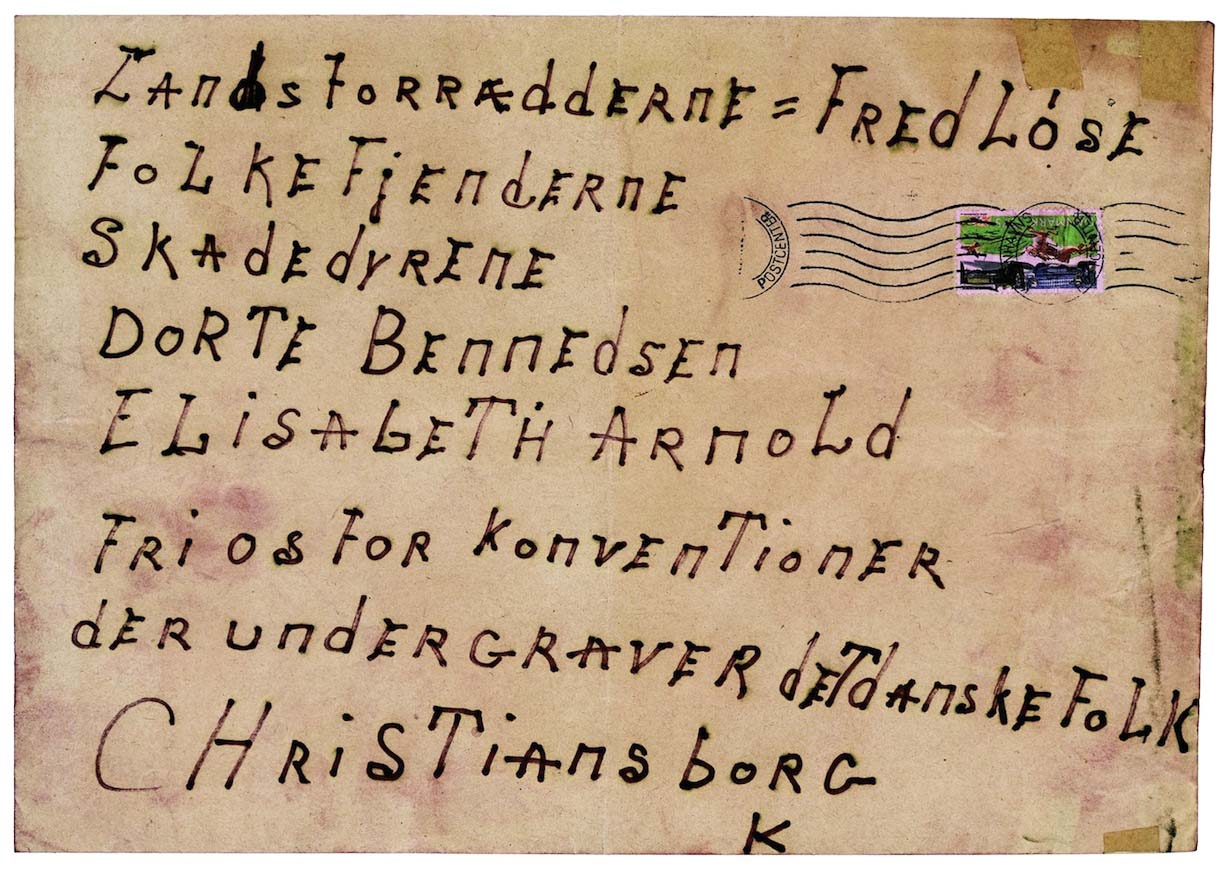 LANDSFORRÆDDERNE = FREDLÓSE
FOLKEFJENDERNE
SKADEDYRENE
DORTE BENNEDSEN
ELISABETH ARNOLD
FRI OS FOR KONVENTIONER
DER UNDERGRAVER DET DANSKE FOLK
CHRISTIANSBORG
K
POSTCENTER